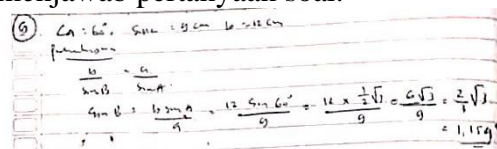 menjawab pertanyaan soal.
9 ∠A = 60°, sisi a = 9 cm b = 12 cm
b/sin B = a/sin A
sin B = b sin A/a = 12 sin 60°/9 = 12 x ½√3/9 = 6√3/9 = 2/3 √3
= 1,154